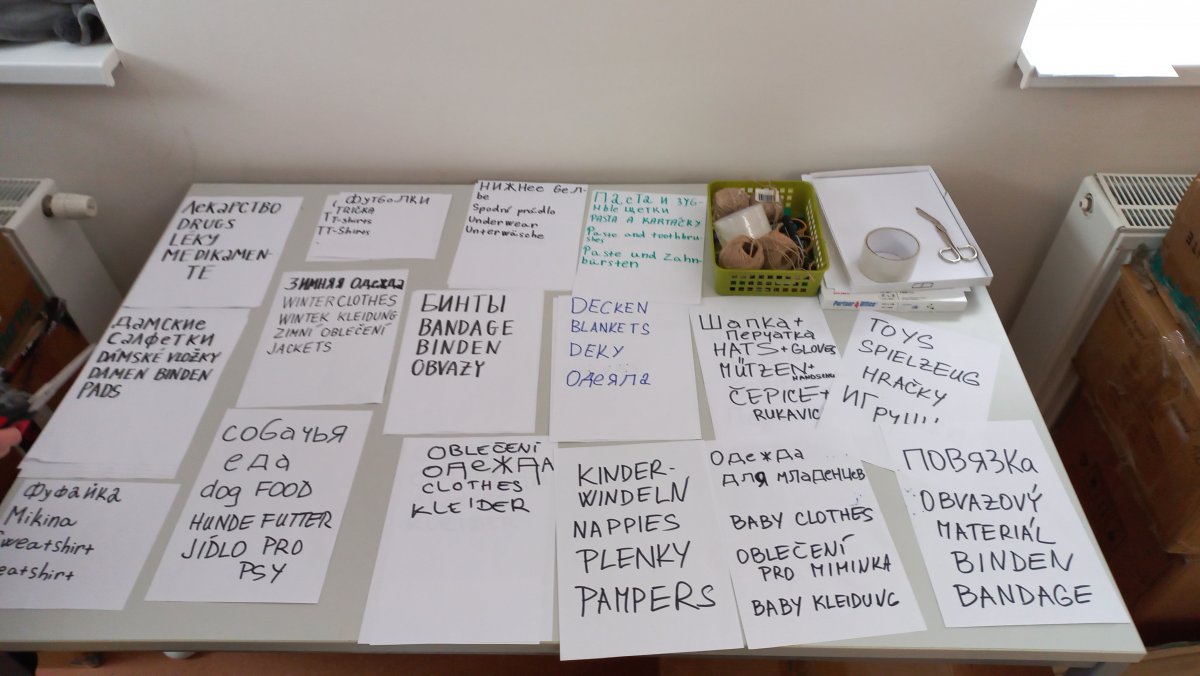 Лекарство
DRUGS
LÉKY
MEDIKAMEN-
TE
Футболки
TRIČKA
TT-Shirts
TT-Shirts
Нижнее бел-
ье
Spodní prádlo
Underwear
Unterwäsche
Паста и зуб-
ные щетки
PASTA A KARTAČKY
Paste and toothbru-
shes
Paste und Zahn-
bürsten
Partner Office
Дамские
салфетки
DÁMSKÉ VLOŽKY
DAMEN BINDEN
PADS
Зимняя одежда
WINTER CLOTHES
WINTER KLEIDUNG
ZIMNÍ OBLEČENÍ
JACKETS
БИНТЫ
BANDAGE
BINDEN
OBVAZY
DECKEN
BLANKETS
DEKY
Одеяла
Шапка+
Перчатка
HATS+GLOVES
MÜTZEN+
ČEPICE+
RUKAVIC
TOYS
SPIELZEUG
HRAČKY
ИГ
РУШ
Фуфайка
Mikina
Sweatshirt
eatshirt
собачья
еда
dog FOOD
HUNDE FUTTER
JÍDLO PRO
PSY
OBLEČENÍ
ОДЕЖДА
CLOTHES
KLEIDER
KINDER-
WINDELN
NAPPIES
PLENKY
PAMPERS
Одежда
для младенцев
BABY CLOTHES
OBLEČENÍ
PRO MIMINKA
BABY KLEIDUNG
ПОВЯЗКА
OBVAZOVÝ
MATERIÁL
BINDEN
BANDAGE